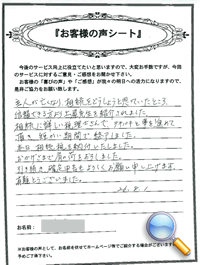 『お客様の声シート』
今後のサービス向上に役立てたいと思いますので、大変お手数ですが、今回
のサービスに対するご意見・ご感想をお聞かせ下さい。
お客様の「喜びの声」や「ご感想」が我々の明日への活力になりますので、
是非ご協力をお願い致します。
主人が亡くなり相続をどうしようと思っていたところ
信頼できる方より土屋先生を紹介されました。
相続に詳しい税理士さんで テキパキと事を進めて
頂き 短かい期間で終了しました。
本日 相続税を納付いたしました。
おかげさまで肩の荷をおろしました。
引き続き 確定申告もよろしくお願い申し上げます。
有難とうございました。
お名前:
※お客様の声として、お名前を伏せてホームページ等でご紹介する場合がございます。
予めご了承下さい。